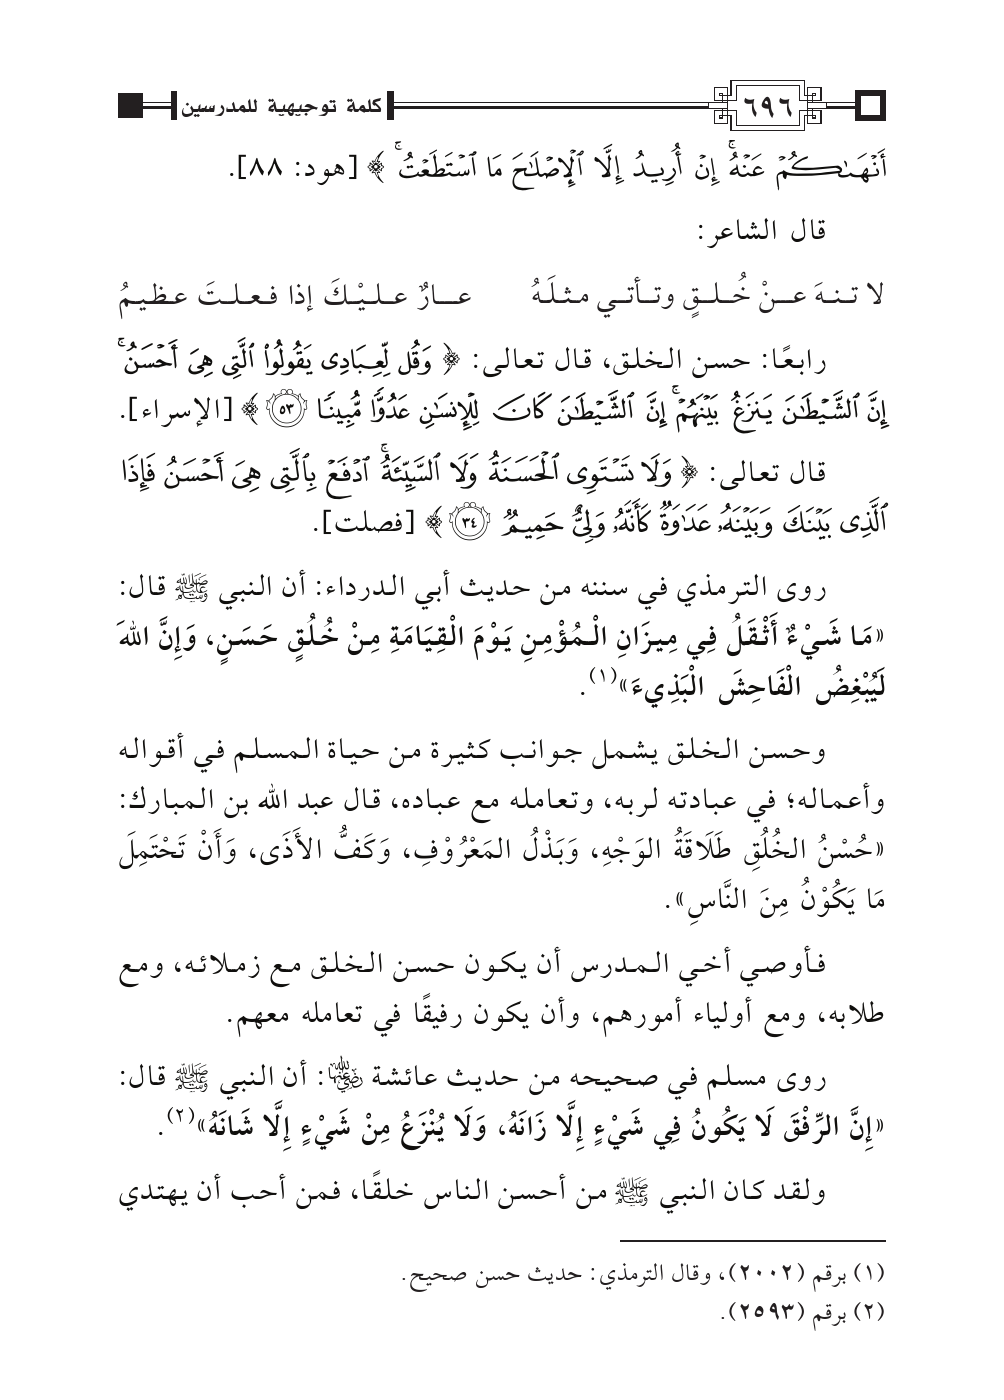 ٦٩٦ كلمة توجيهية للمدرسين
أَنْهَىٰكُمْ عَنْهُ ۚ إِنْ أُرِيدُ إِلَّا ٱلْإِصْلَٰحَ مَا ٱسْتَطَعْتُ ۚ ﴾ [هود: ٨٨].
قال الشاعر:
لا تنهَ عنْ خُلقٍ وتأتي مثلَهُ عارٌ عليْكَ إذا فعلتَ عظيمُ
رابعًا: حسن الخلق، قال تعالى: ﴿ وَقُل لِّعِبَادِى يَقُولُوا۟ ٱلَّتِى هِىَ أَحْسَنُ ۚ
إِنَّ ٱلشَّيْطَٰنَ يَنزَغُ بَيْنَهُمْ ۚ إِنَّ ٱلشَّيْطَٰنَ كَانَ لِلْإِنسَٰنِ عَدُوًّا مُّبِينًا ٥٣ ﴾ [الإسراء].
قال تعالى: ﴿ وَلَا تَسْتَوِى ٱلْحَسَنَةُ وَلَا ٱلسَّيِّئَةُ ۚ ٱدْفَعْ بِٱلَّتِى هِىَ أَحْسَنُ فَإِذَا
ٱلَّذِى بَيْنَكَ وَبَيْنَهُۥ عَدَٰوَةٌ كَأَنَّهُۥ وَلِىٌّ حَمِيمٌ ٣٤ ﴾ [فصلت].
روى الترمذي في سننه من حديث أبي الدرداء: أن النبي ﷺ قال:
«مَا شَيْءٌ أَثْقَلُ فِي مِيزَانِ الْمُؤْمِنِ يَوْمَ الْقِيَامَةِ مِنْ خُلُقٍ حَسَنٍ، وَإِنَّ اللهَ
لَيُبْغِضُ الْفَاحِشَ الْبَذِيءَ»(١).
وحسن الخلق يشمل جوانب كثيرة من حياة المسلم في أقواله
وأعماله؛ في عبادته لربه، وتعامله مع عباده، قال عبد الله بن المبارك:
«حُسْنُ الخُلُقِ طَلَاقَةُ الوَجْهِ، وَبَذْلُ المَعْرُوْفِ، وَكَفُّ الأَذَى، وَأَنْ تَحْتَمِلَ
مَا يَكُوْنُ مِنَ النَّاسِ».
فأوصي أخي المدرس أن يكون حسن الخلق مع زملائه، ومع
طلابه، ومع أولياء أمورهم، وأن يكون رفيقًا في تعامله معهم.
روى مسلم في صحيحه من حديث عائشة رضي الله عنها: أن النبي ﷺ قال:
«إِنَّ الرِّفْقَ لَا يَكُونُ فِي شَيْءٍ إِلَّا زَانَهُ، وَلَا يُنْزَعُ مِنْ شَيْءٍ إِلَّا شَانَهُ»(٢).
ولقد كان النبي ﷺ من أحسن الناس خلقًا، فمن أحب أن يهتدي
(١) برقم (٢٠٠٢)، وقال الترمذي: حديث حسن صحيح.
(٢) برقم (٢٥٩٣).